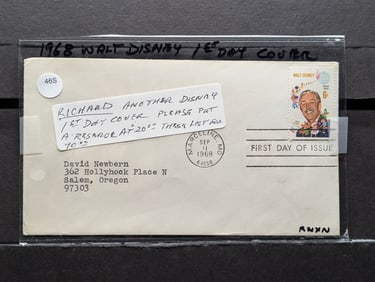 1968 WALT DISNEY 1ST DAY COVER
46S
RICHARD ANOTHER DISNEY
1ST DAY COVER PLEASE PUT
A RESERVE AT "20°° THESE LIST FOR
70°°
WALT DISNEY
6c
MARCELINE, MO
SEP
11
1968
64658
FIRST DAY OF ISSUE
David Newbern
362 Hollyhock Place N
Salem, Oregon
97303
RNXN